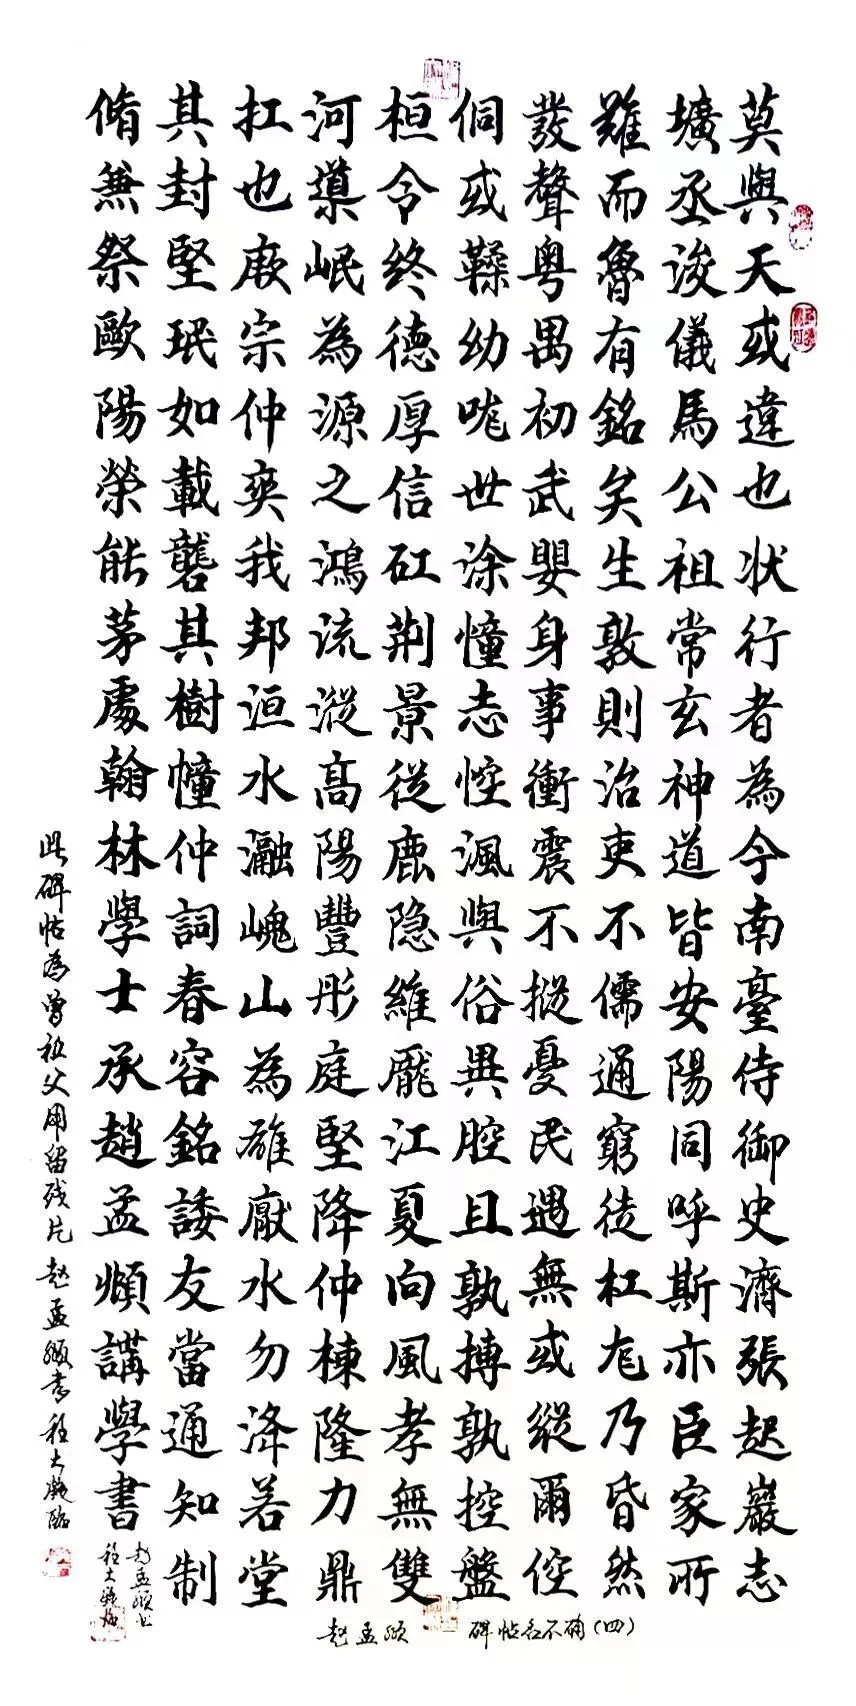 莫與天或違也状行者為今南臺侍御史濟張起巖志
壙丞浚儀馬公祖常玄神道皆安陽同呼斯亦臣家所
難而魯有銘矣生敦則治吏不儒通窮徒杠厖乃昏然
發聲粤禺初武嬰身事衝震不摐憂民遇無或縱爾倥
侗或鞣幼咙世涂憧志悾渢與俗異腔且孰摶孰控盤
桓令終德厚信矼荆景従鹿隐維龎江夏向風孝無雙
河導岷為源之鴻流漎髙陽豐彤庭堅降仲棟隆力鼎
扛也厥宗仲奕我邦洹水瀜嵬山為碓厭水勿洚若堂
其封堅珉如載礱其樹幢仲詞春容銘諉友當通知制
脩兼祭歐陽榮能茅處翰林學士承趙孟頫講學書
此碑帖為曾祖父用留残片 赵孟頫書程大战臨
赵孟頫 碑帖名不确（四）